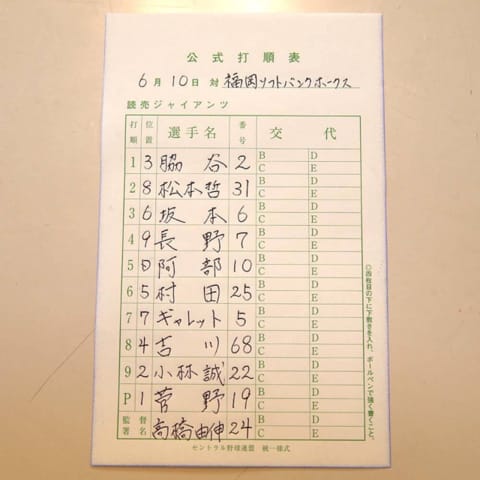 公式打順表
6月10日 対 福岡ソフトバンクホークス
読売ジャイアンツ
打順 位置 選手名 番号 交代
1 3 脇谷 2 B D C E
2 8 松本哲 31 B D C E
3 6 坂本 6 B D C E
4 9 長野 7 B D C E
5 D 阿部 10 B D C E
6 5 村田 25 B D C E
7 7 ギャレット 5 B D C E
8 4 吉川 68 B D C E
9 2 小林誠 22 B D C E
P 1 菅野 19 B D C E
監督署名 高橋由伸 24 B D C E
◎四枚目の下に下敷きを入れ、ボールペンで強く書くこと。
セントラル野球連盟 統一様式